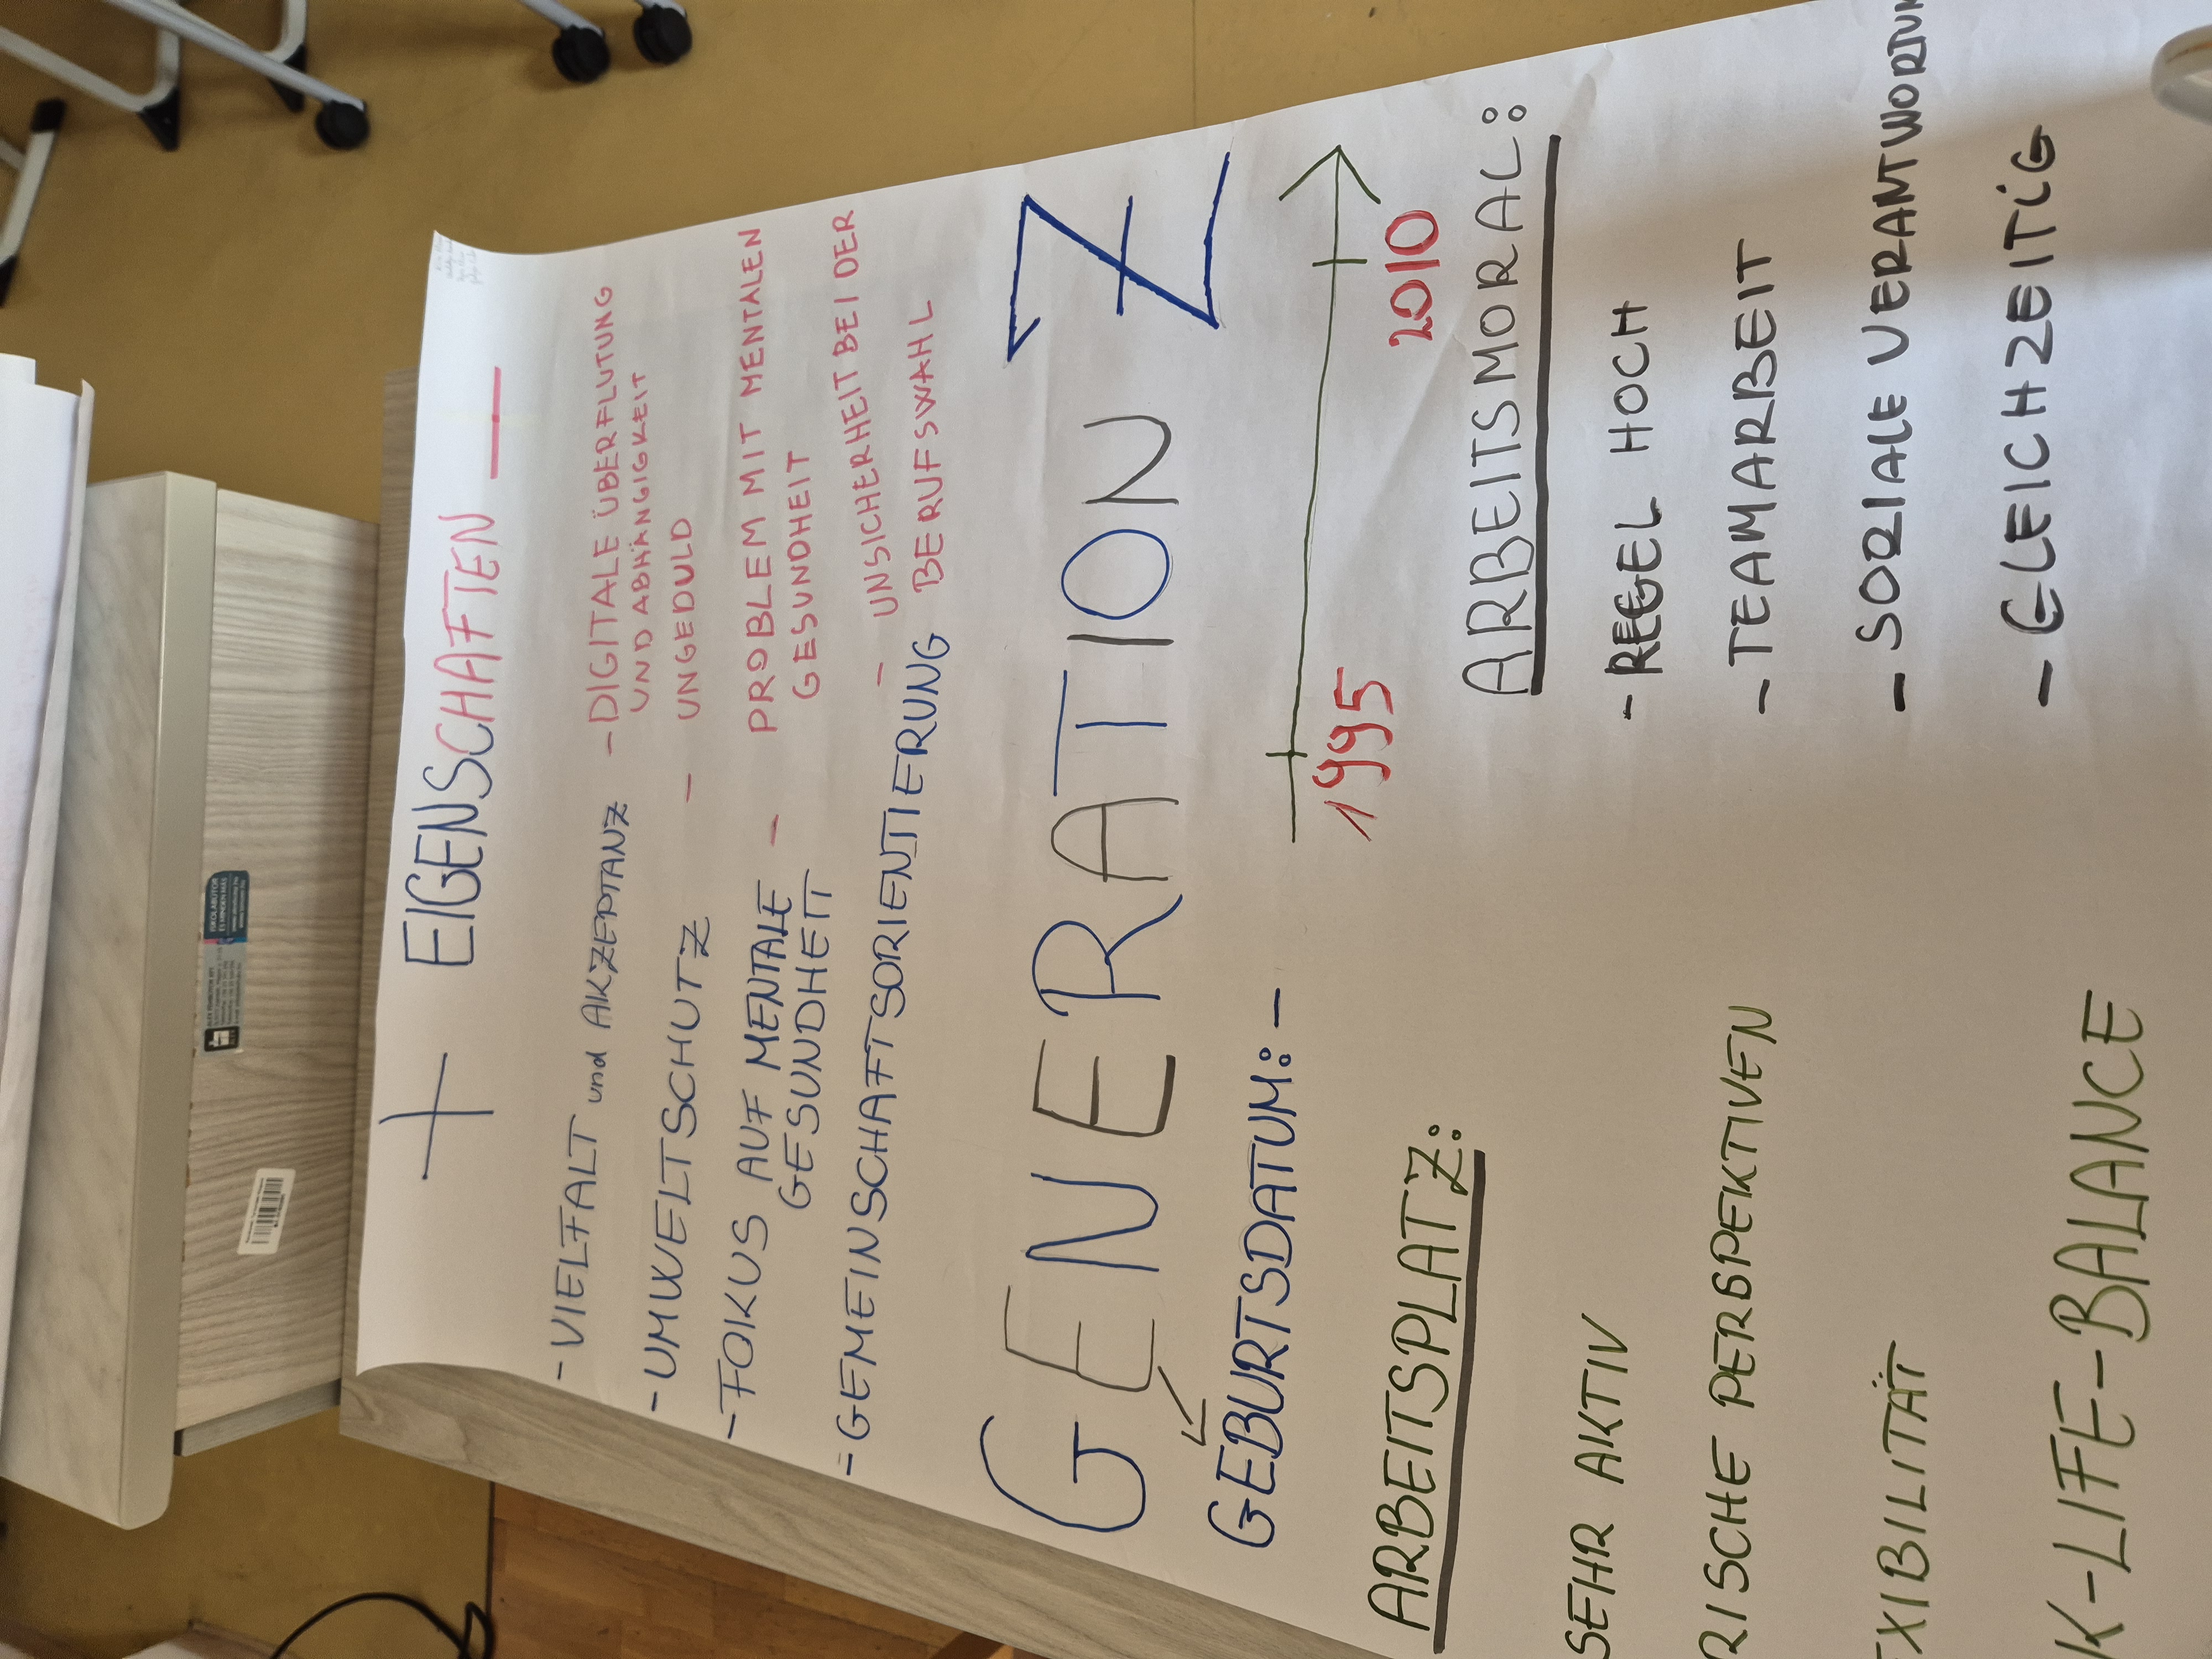 + EIGENSCHAFTEN —
- VIELFALT und AKZEPTANZ
- UMWELTSCHUTZ
- FOKUS AUF MENTALE
GESUNDHEIT
= GEMEINSCHAFTSORIENTIERUNG
- DIGITALE ÜBERFLUTUNG
UND ABHÄNGIGKEIT
- UNGEDULD
- PROBLEM MIT MENTALEN
GESUNDHEIT
- UNSICHERHEIT BEI DER
BERUFSWAHL
GENERATION Z
GEBURTSDATUM: -
1995 2010
ARBEITSPLATZ:
SEHR AKTIV
RISCHE PERSPEKTIVEN
EXIBILITÄT
K-LIFE-BALANCE
ARBEITSMORAL:
- REGEL HOCH
- TEAMARBEIT
- SORIALE VERANTWORTUN
- GLEICHZEITIG